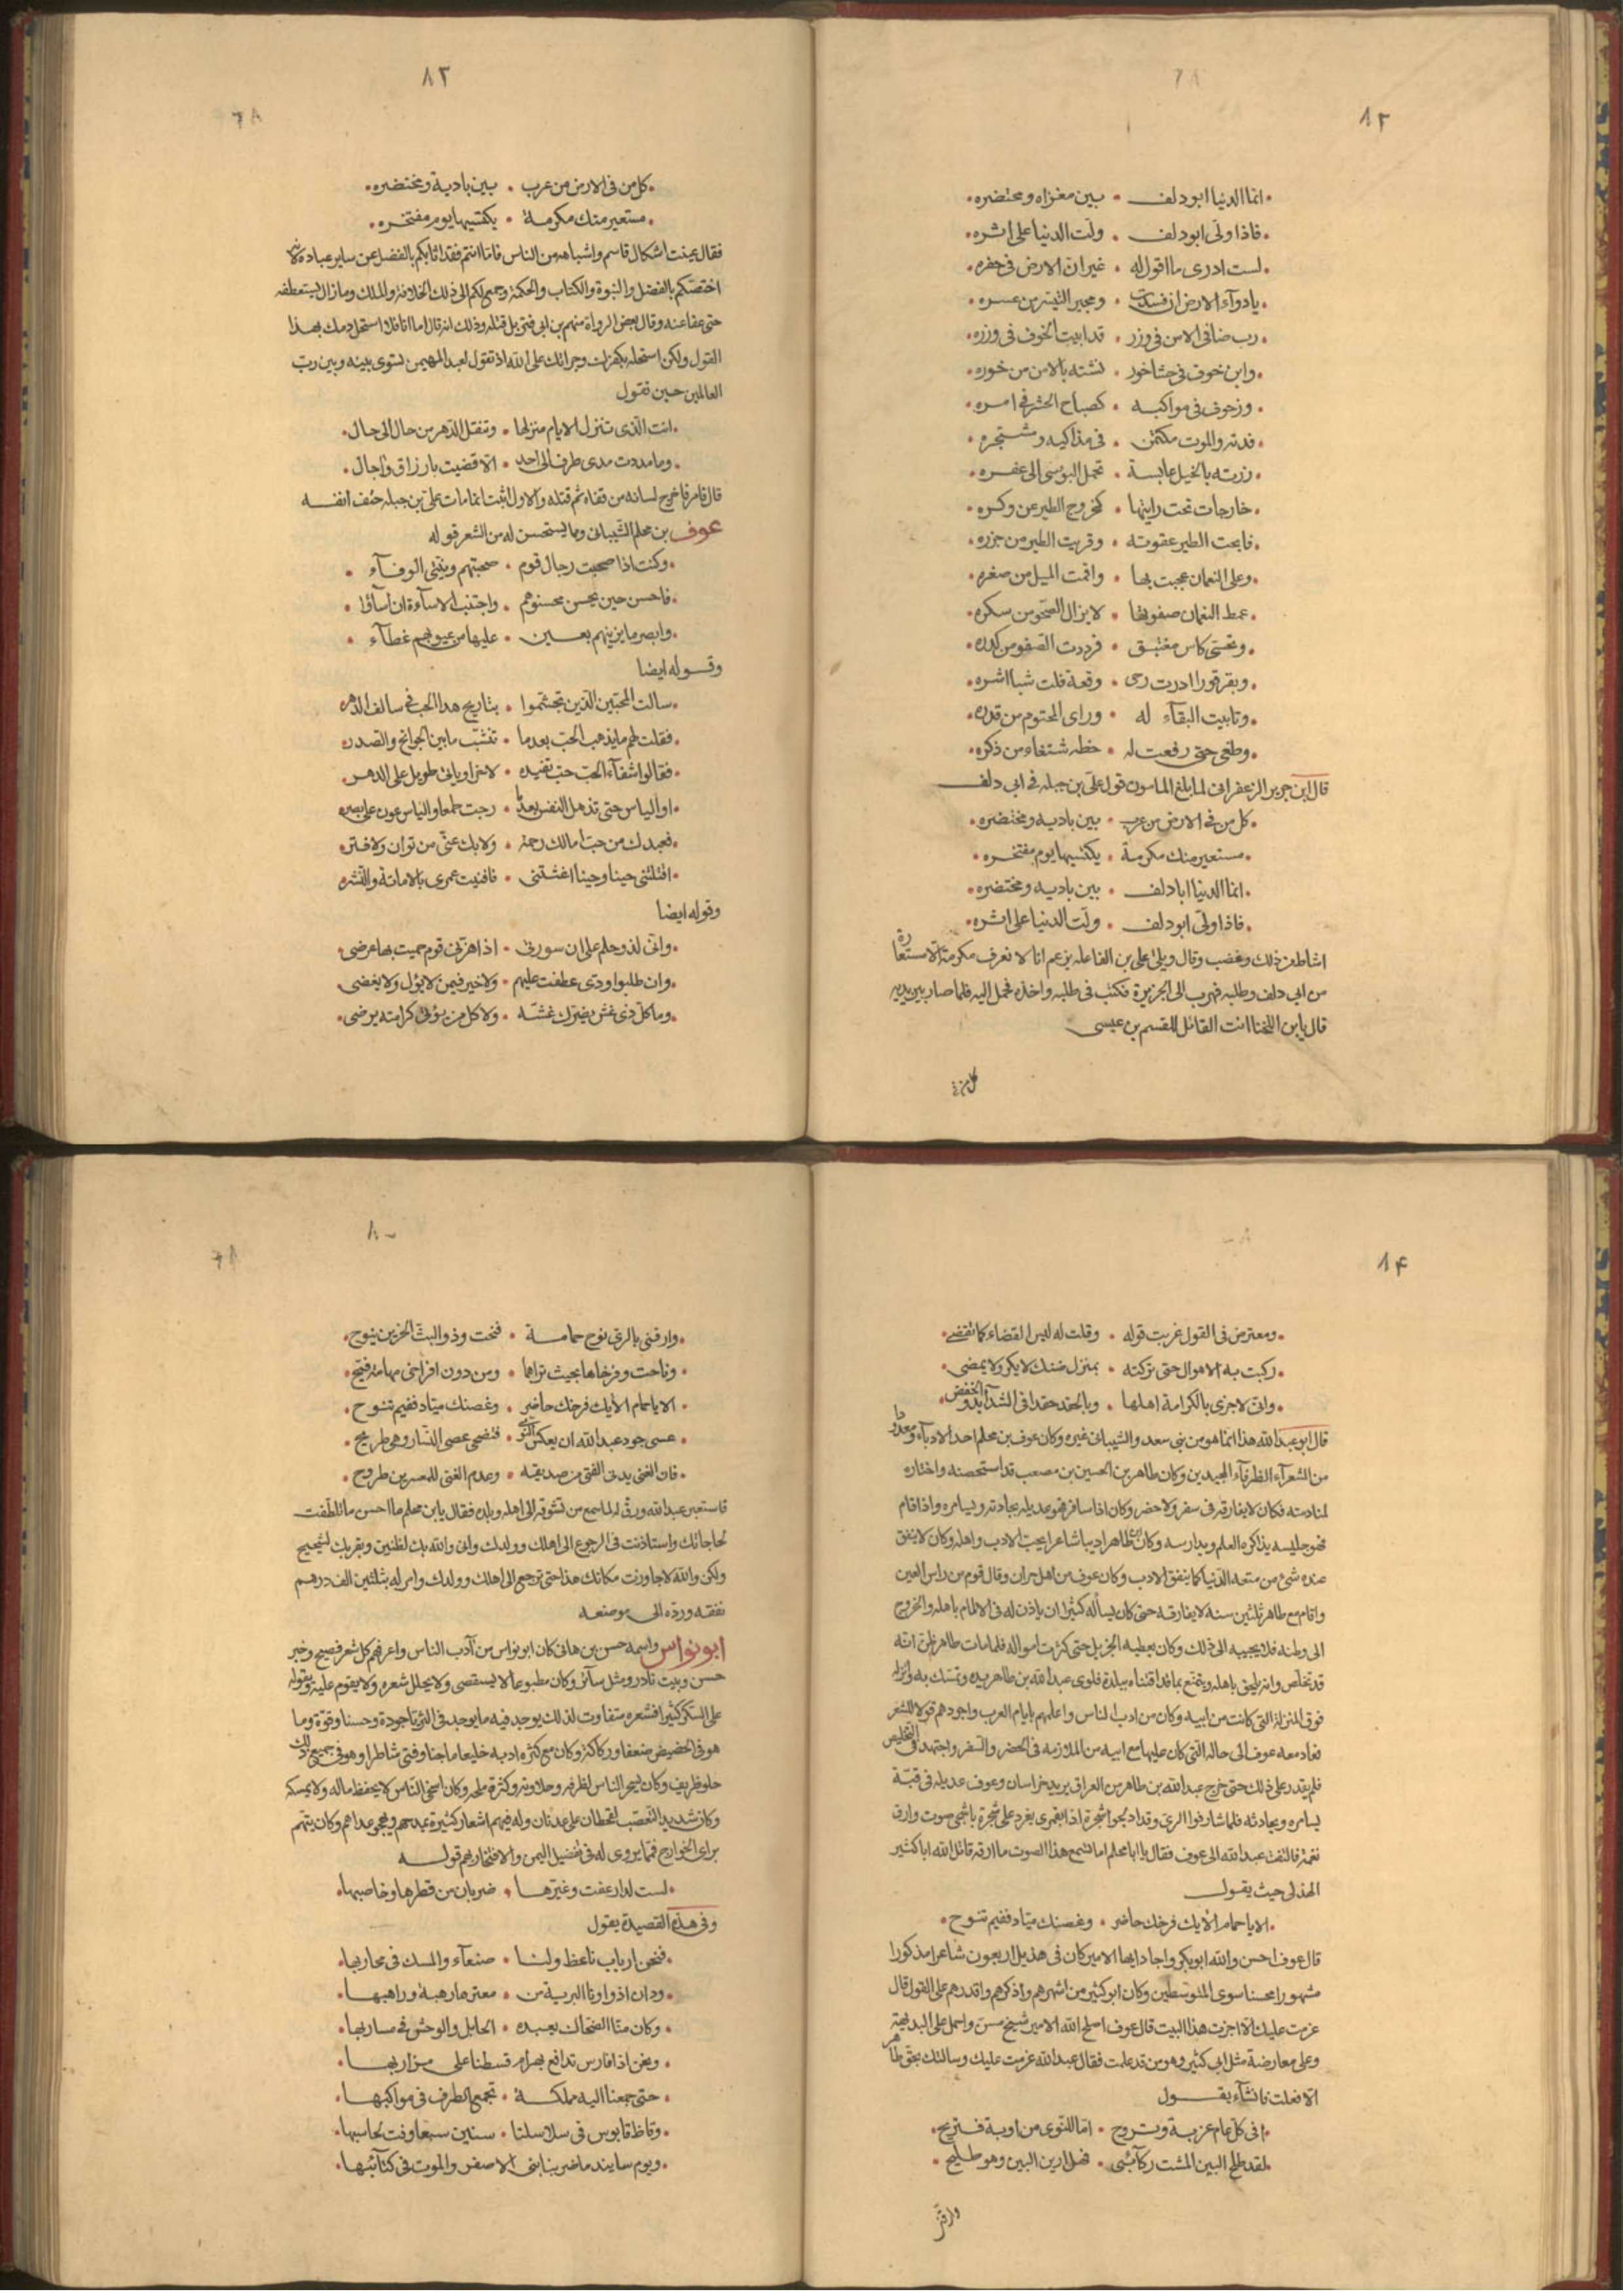 ٨٢
انما الدنيا ابو دلف • بين مغزاه ومحتضره
فاذا ولى ابو دلف • ولت الدنيا على اثره
لست ادرى ما اقول له • غير ان الارض فى خفره
يا دوآء الارض ان فسدت • ومجير اليسر من عسره
رب ضافى الامن فى وزر • قد ابيت الخوف فى وزره
وابن خوف فى حشا خور • نشته بالامن من خوره
وزحوف فى مواكبه • كصباح الحشر فى امره
قدته والموت مكتمن • فى مذاكيه ومشتجره
زرته بالخيل عابسة • تحمل البوسى الى عقره
خارجات تحت رايتها • كخروج الطير عن وكره
فابحت الطير عقوته • وقريت الطير من جزره
وعلى النعمان عجبت بها • واقمت الميل من صغره
غمط النعمان صفوتها • لا يزال الصحو من سكره
وتحسى كاس مغتبق • فرددت الصفو من كدره
وبقرقورا ادرت رحى • وقعة فلت شبا اشره
وتابيت البقآء له • وراى المحتوم من قدره
وطغى حتى رفعت له • خطة شنعاء من ذكره
قال ابن جرير الزعفرانى لما بلغ المامون قول على بن جبله فى ابى دلف
كل من فى الارض من عرب • بين باديه ومحتضره
مستعير منك مكرمة • يكتسيها يوم مفتخره
انما الدنيا ابا دلف • بين باديه ومحتضره
فاذا ولى ابو دلف • ولت الدنيا على اثره
اشاط من ذلك وغضب وقال ويلى على بن الفاعله يزعم انا لا نعرف مكرمة الا مستعارة
من ابى دلف وطلبه فهرب الى الجزيرة فكتب فى طلبه واخذه فحمل اليه فلما صار بين يديه
قال يا بن اللخنا انت القائل للقسم بن عيسى
كل من فى
٨٢
كل من فى الارض من عرب • بين بادية ومحتضره
مستعير منك مكرمة • يكتسيها يوم مفتخره
فقال عينت اشكال قاسم واشباهه من الناس فاما انتم فقد اثابكم بالفضل عن ساير عباده لانه
اختصكم بالفضل والنبوة والكتاب والحكمة وجمع لكم الى ذلك الخلافة والملك وما زال يستعطفه
حتى عفا عنه وقال بعض الرواة منهم بن ابى فنن بل قتله وذلك انه قال اما انا فلا استحل دمك بهذا
القول ولكن استحله بكفرك وجراتك على الله اذ تقول لعبد المهيمن تسوى بينه وبين رب
العالمين حين تقول
انت الذى تنزل الايام منزلها • وتنقل الدهر من حال الى حال
وما مددت مدى طرف الى احد • الا قضيت بارزاق واجال
قال قامر فاخرج لسانه من قفاه ثم قتله والاول اثبت انما مات على بن جبله حتف انفه
عوف بن محلم الشيبانى ومما يستحسن له من الشعر قوله
وكنت اذا صحبت رجال قوم • صحبتهم ونيتى الوفآء
فاحسن حين يحسن محسنوهم • واجتنب الاسآءة ان اسآؤا
وابصر ما يريبهم بعين • عليها من عيوبهم غطآء
وقوله ايضا
سالت المحبين الذين تجشموا • بتاريح هذا الحب فى سالف الدهر
فقلت لهم ما يذهب الحب بعد ما • تنشب ما بين الجوانح والصدر
فقالوا شفآء الحب حب تفيده • لاخرى او نائ طويل على الدهر
او الياس حتى تذهل النفس بعد ما • رجت طمعا والياس عون على صبر
فعبدك من حب امالك رحمة • ولا بك عنى من توان ولا فتر
اقتلتنى حينا وحينا اغثتنى • فافنيت عمرى بالاماتة والنشر
وقوله ايضا
وانى لذو حلم على ان سورتى • اذا هزنى قوم حميت بها عرضى
وان طلبوا ودى عطفت عليهم • ولا خير فيمن لا يؤل ولا يغضى
وما كل ذى غش يضرك غشه • ولا كل من يؤتى كرامته يرضى
٨٤
ومعترض فى القول غربت قوله • وقلت له ليس القضاء كما تقضى
ركبت به الاهوال حتى تركته • بمنزل ضنك لا يكر ولا يمضى
وانى لاجزى بالكرامة اهلها • وبالحقد حقدا فى الشدآئد والخفض
قال ابو عبد الله هذا انما هو من بنى سعد والشيبانى غيره وكان عوف بن محلم احد الادبآء ومعدودا
من الشعرآء الظرفآء المجيدين وكان طاهر بن الحسين بن مصعب قد استحصنه واختاره
لمنادمته فكان لا يفارقه فى سفر ولا حضر وكان اذا سافر فهو عديله يحادثه ويسامره واذا قام
فهو جليسه يذاكره العلم ويدارسه وكان طاهر اديبا شاعرا يحب الادب واهله وكان لا ينفق
عنده شئ من متعه الدنيا كما ينفق الادب وكان عوف من اهل حران وقال قوم من راس العين
واقام مع طاهر ثلثين سنة لا يفارقه حتى كان يسأله كثيرا ان ياذن له فى الالمام باهله والخروج
الى وطنه فلا يجيبه الى ذلك وكان يعطيه الجزيل حتى كثرت امواله فلما مات طاهر ظن انه
قد تخلص وانه يلحق باهله ويتمتع بما قد اقتناه ببلده فلوى عبد الله بن طاهر يده وتمسك به وانزله
فوق المنزلة التى كانت من ابيه وكان من ادب الناس واعلمهم بايام العرب واجودهم قولا للشعر
فعاد معه عوف الى حاله التى كان عليها مع ابيه من الملازمه فى الحضر والسفر واجتهد فى التخليص
فلم يقدر على ذلك حتى خرج عبد الله بن طاهر من العراق يريد خراسان وعوف عديله فى قبة
يسامره ويحادثه فلما شارفوا الرى وقد ادلجوا شجرة اذا بقمرى يغرد على شجرة باشجى صوت وارق
نغمة فالتفت عبد الله الى عوف فقال يا ابا محلم اما تسمع هذا الصوت ما ارقه قاتل الله ابا كثير
الهذلى حيث يقول
الا يا حمام الايك فرخك حاضر • وغصنك مياد ففيم تنوح
قال عوف احسن والله ابو بكر واجاد ايها الامير كان فى هذيل اربعون شاعرا مذكورا
مشهورا محسنا سوى المتوسطين وكان ابو كثير من اشهرهم واذكرهم واقدرهم على القول قال
عزمت عليك الا اجزت هذا البيت قال عوف اصلح الله الامير شيخ مسن واحمل على البديهة
وعلى معارضة مثل ابى كثير وهو من قد علمت فقال عبد الله عزمت عليك وسالتك بحق طاهر
الا فعلت فانشآء يقول
افى كل عام غربة وتروح • اما للنوى من اوبة فتريح
لقد طلح البين المشت ركآئبى • فهل ارين البين وهو طليح
وارقنى
٨٠
وارقنى بالرى نوح حمامة • فنحت وذو البث الحزين ينوح
وناحت وفرخاها بحيث تراهما • ومن دون افراخى مهامة فيح
الا يا حمام الايك فرخك حاضر • وغصنك مياد ففيم تنوح
عسى جود عبد الله ان يعكس النوى • فتضحى عصى التسيار وهى طريح
فان الغنى يدنى الفتى من صديقه • وعدم الغنى للمعسرين طروح
فاستعبر عبد الله ورق له لما سمع من تشوقه الى اهله وبلده فقال يا بن محلم ما احسن ما تلطفت
لحاجاتك واستاذنت فى الرجوع الى اهلك وولدك وانى والله بك لظنين وبقربك لشحيح
ولكن والله لا جاوزت مكانك هذا حتى ترجع الى اهلك وولدك وامر له بثلثين الف درهم
نفقه ورده الى موضعه
ابو نواس واسمه حسن بن هانى كان ابو نواس من آدب الناس واعرفهم كل شعر فصيح وخبر
حسن وبيت نادر ومثل سآئر وكان مطبوعا لا يستقصى ولا يحلل شعره ولا يقوم عليه ويقوله
على السكر كثيرا فشعره متفاوت لذلك يوجد فيه ما يوجد فى الثريا جودة وحسنا وقوة وما
هو فى الحضيض ضعفا وركاكة وكان مع كثرة ادبه خليعا ماجنا وفتى شاطرا وهو فى جميع ذلك
حلو ظريف وكان يسحر الناس لظرفه وحلاوته وكثرة ملحه وكان اسخى الناس لا يحفظ ماله ولا يمسكه
وكان شديد التعصب لقحطان على عدنان وله فيهم اشعار كثيرة يمدحهم ويهجو عداهم وكان يتهم
براى الخوارج فمما يروى له فى تفضيل اليمن والافتخار بهم قوله
لست لدار عفت وغيرها • ضربان من قطرها وخاصبها
وفى هذه القصيدة يقول
فنحن ارباب ناعظ ولنا • صنعآء والمسك فى محاربها
ودان اذوآونا البرية من • معترها رهبة وراهبها
وكان منا الضحاك يعبده • الخابل والوحش فى مساربها
ونحن اذا فارس تدافع بهرام قسطنا على مزاربها
حتى جمعنا اليه مملكة • تجمع الطرف فى مواكبها
وقاظ قابوس فى سلاسلنا • سنين سبعا وفت لحاسبها
ويوم ساتيدما ضربنا بنى الاصفر والموت فى كتآئبها